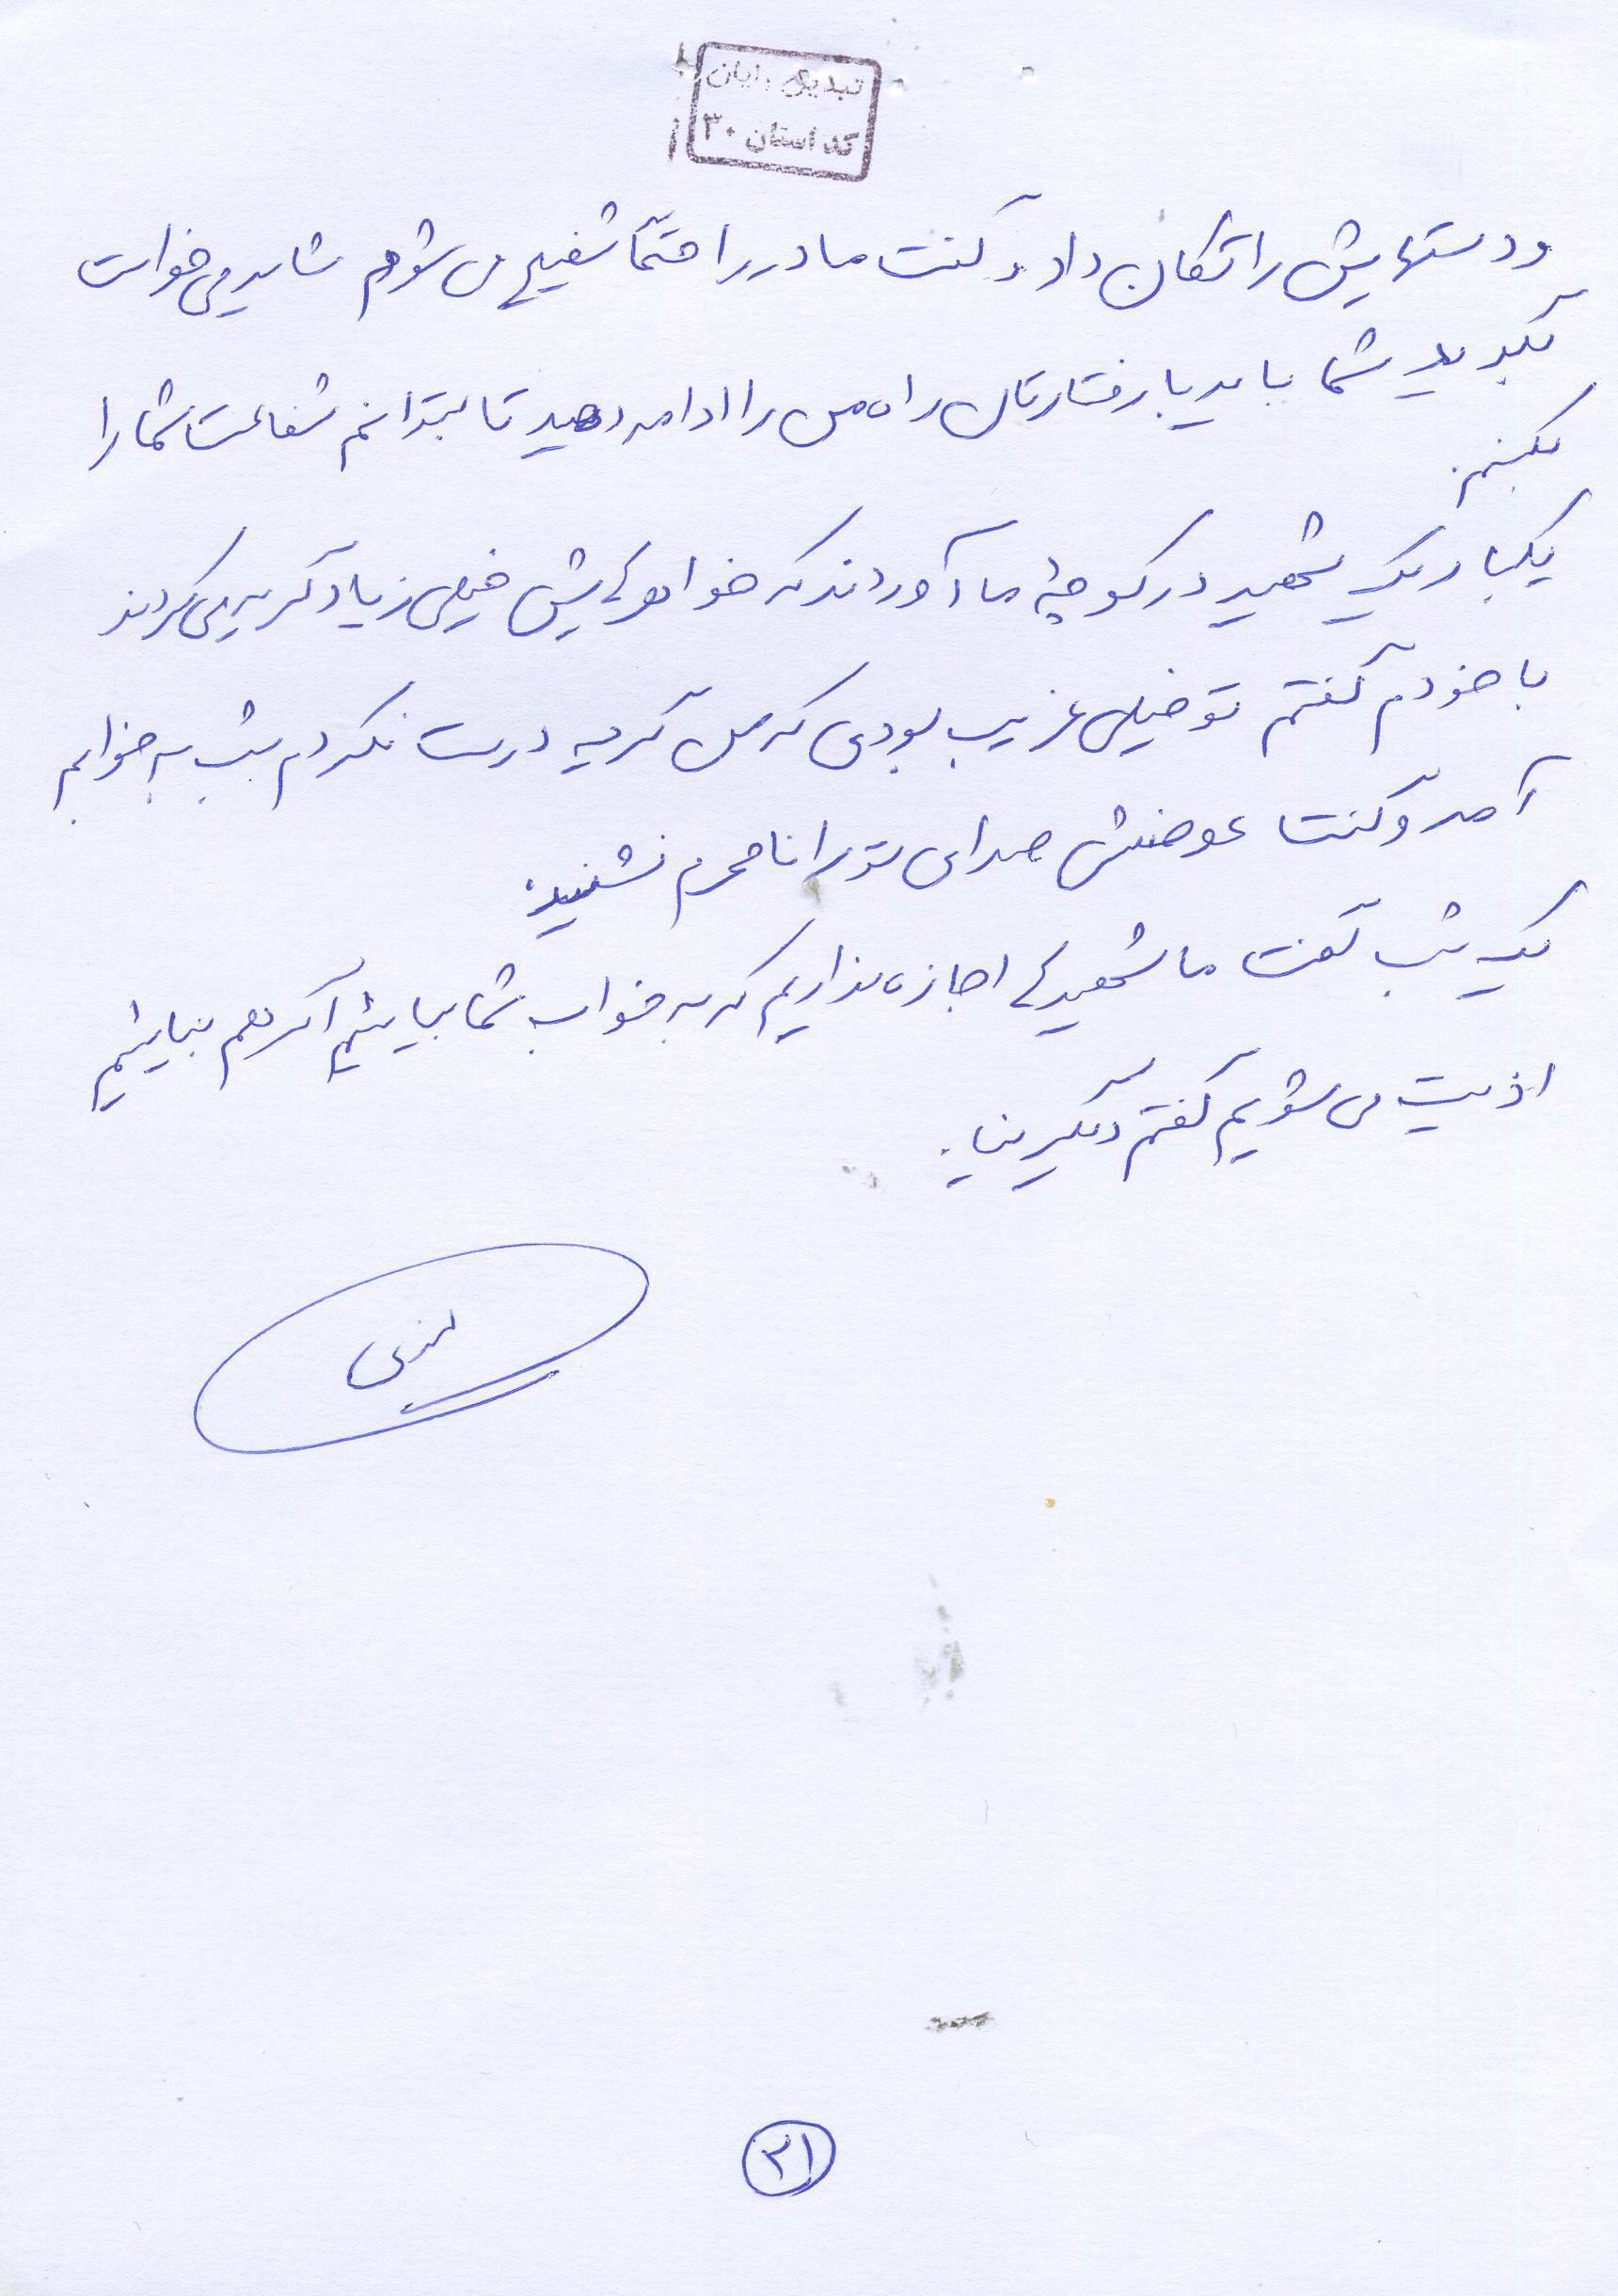 تبدیل رایان
کد استان ۳۰
و دستهایش را تکان داد و گفت مادر را حتماً شفیع می شوم شاید می خواست
بگوید شما باید با رفتارتان راه من را ادامه دهید تا بتوانم شفاعت شما را
بکنم.
یکبار یک شهید در کوچه ما آوردند که خواهرهایش خیلی زیاد گریه می کردند
با خودم گفتم تو خیلی غریب بودی که من گریه درست نکردم شب به خوابم
آمد و گفت عوضش صدای تو را نامحرم نشنید.
یک شب گفت ما شهیدها اجازه نداریم که به خواب شما بیائیم اگر هم بیائیم
اذیت می شویم گفتم دیگر نیا.
۲۱